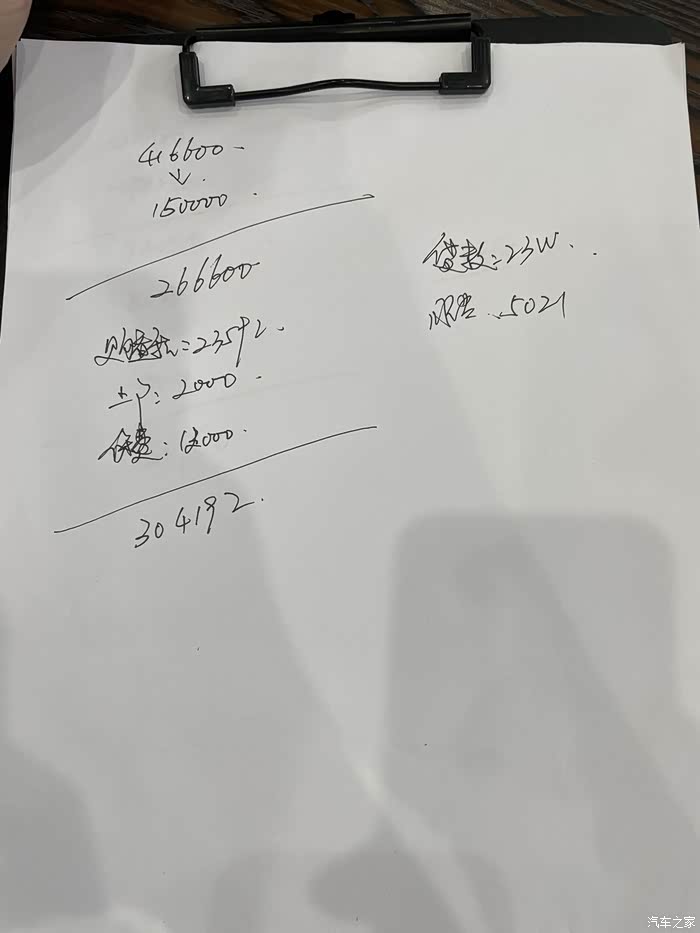 416600
↓
150000
266600
购置税:23592
上户:2000
保费:12000
304192
贷款:23W
5021
汽车之家